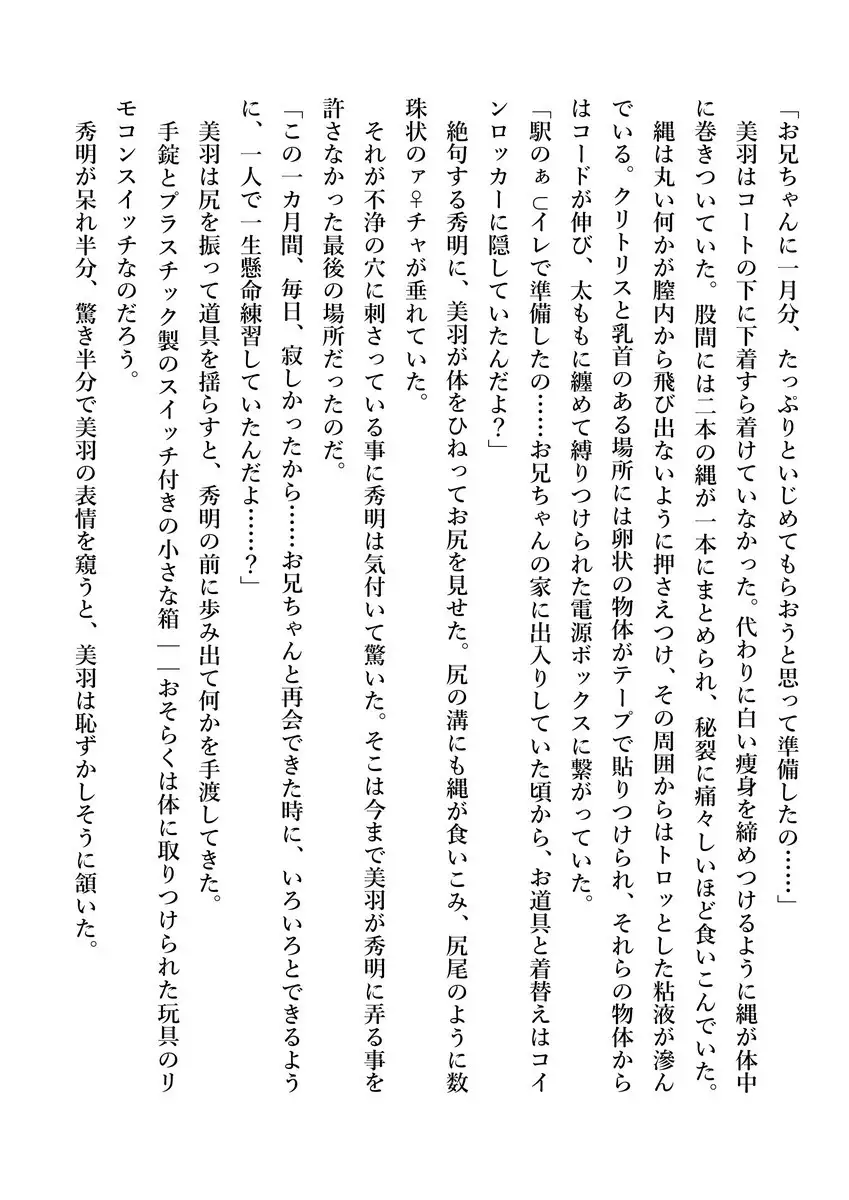 「お兄ちゃんに一月分、たっぷりといじめてもらおうと思って準備したの……」
美羽はコートの下に下着すら着けていなかった。代わりに白い痩身を締めつけるように縄が体中
に巻きついていた。股間には二本の縄が一本にまとめられ、秘裂に痛々しいほど食いこんでいた。
縄は丸い何かが膣内から飛び出ないように押さえつけ、その周囲からはトロッとした粘液が滲ん
でいる。クリトリスと乳首のある場所には卵状の物体がテープで貼りつけられ、それらの物体から
はコードが伸び、太ももに纏めて縛りつけられた電源ボックスに繋がっていた。
「駅のぁ⊂イレで準備したの……お兄ちゃんの家に出入りしていた頃から、お道具と着替えはコイ
ンロッカーに隠していたんだよ？」
絶句する秀明に、美羽が体をひねってお尻を見せた。尻の溝にも縄が食いこみ、尻尾のように数
珠状のァ♀チャが垂れていた。
それが不浄の穴に刺さっている事に秀明は気付いて驚いた。そこは今まで美羽が秀明に弄る事を
許さなかった最後の場所だったのだ。
「この一カ月間、毎日、寂しかったから……お兄ちゃんと再会できた時に、いろいろとできるよう
に、一人で一生懸命練習していたんだよ……？」
美羽は尻を振って道具を揺らすと、秀明の前に歩み出て何かを手渡してきた。
手錠とプラスチック製のスイッチ付きの小さな箱――おそらくは体に取りつけられた玩具のリ
モコンスイッチなのだろう。
秀明が呆れ半分、驚き半分で美羽の表情を窺うと、美羽は恥ずかしそうに頷いた。